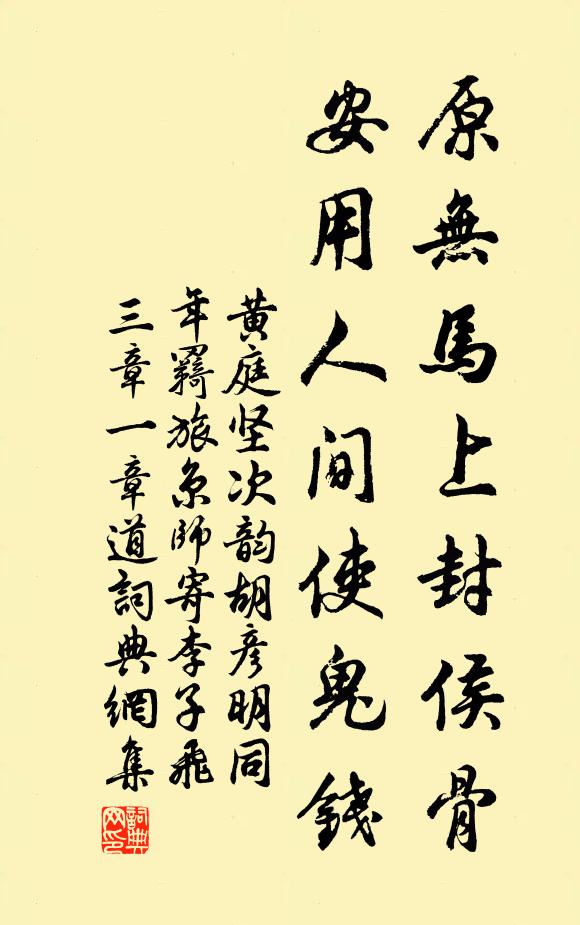 原無馬上封侯骨
安用人間使鬼錢
黄庭坚次韵胡彦明同
年羇旅京師寄李子飛
三章一章道詞典網集
詞典
网印